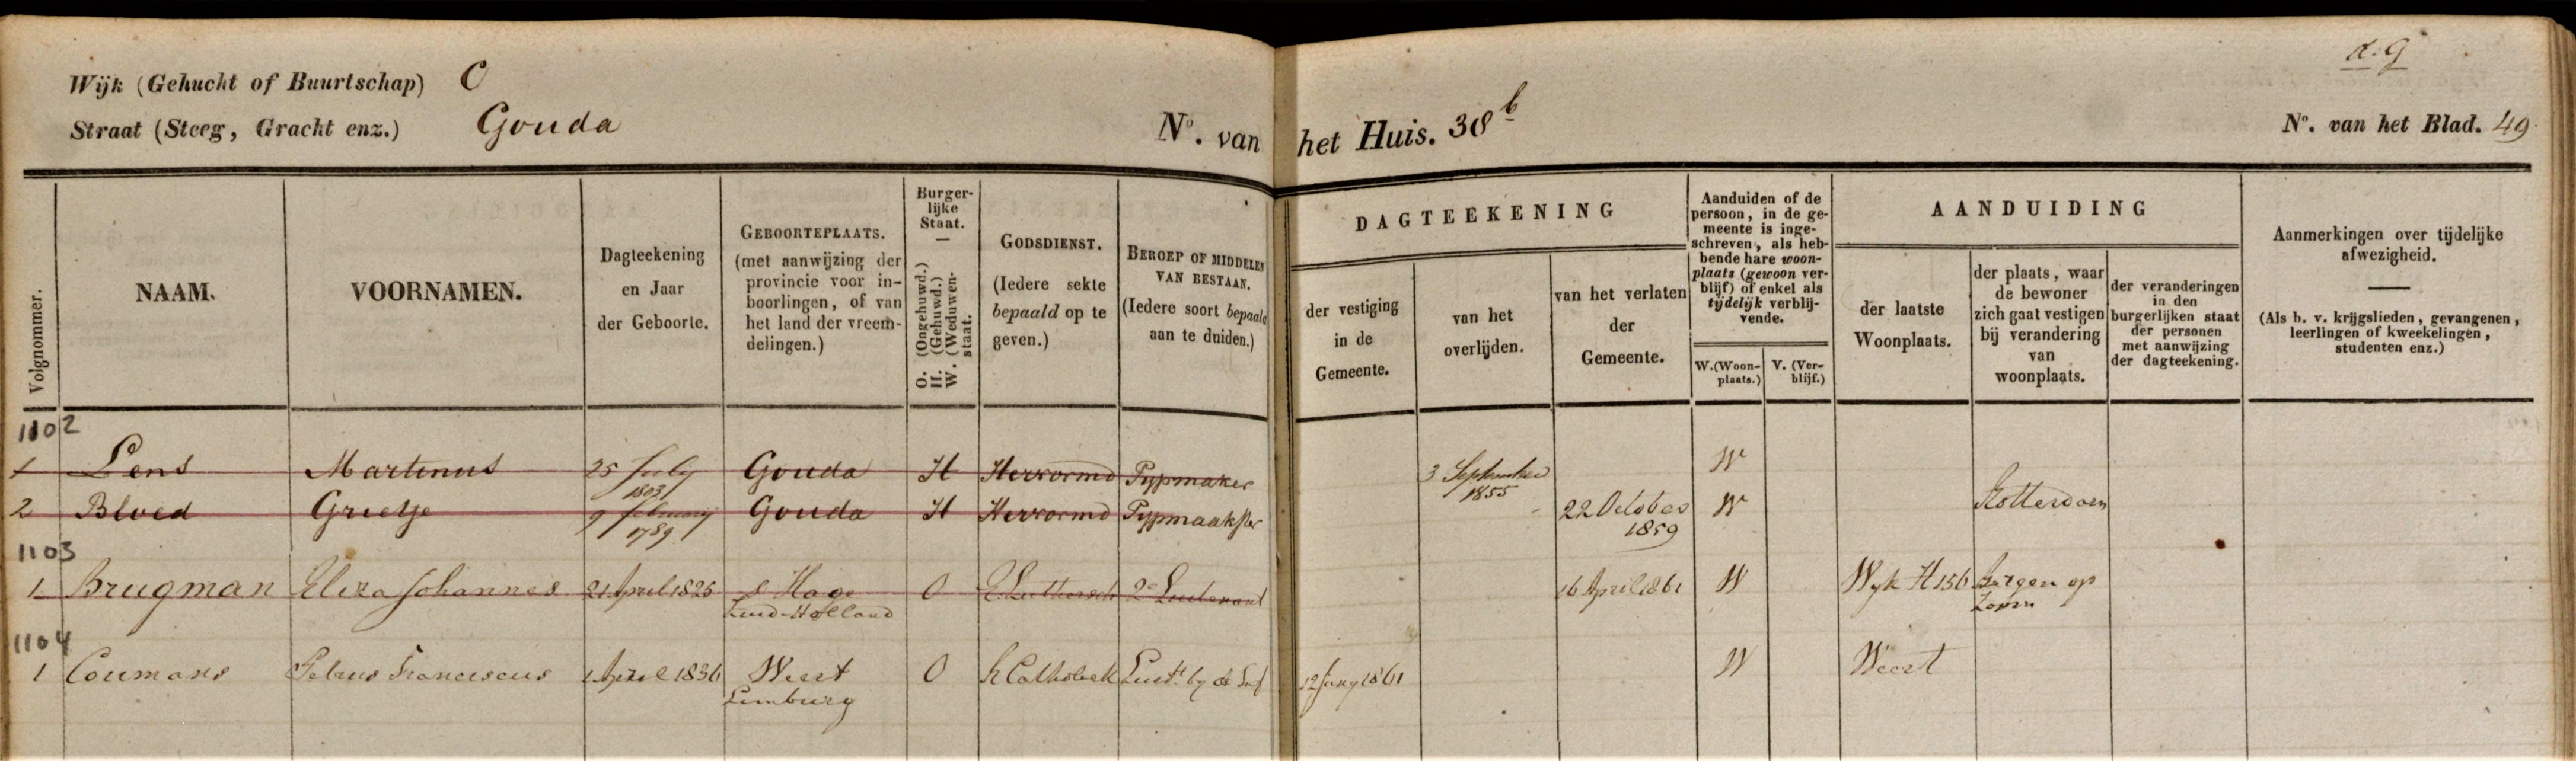 d. G
Wijk (Gehucht of Buurtschap) C
Straat (Steeg, Gracht enz.) Gouda
No. van het Huis. 38b
No. van het Blad. 49
Volgnommer.
NAAM.
VOORNAMEN.
Dagteekening
en Jaar
der Geboorte.
GEBOORTEPLAATS.
(met aanwijzing der
provincie voor in-
boorlingen, of van
het land der vreem-
delingen.)
Burger-
lijke
Staat.
O. (Ongehuwd.)
H. (Gehuwd.)
W. (Weduwen-
staat.
GODSDIENST.
(Iedere sekte
bepaald op te
geven.)
BEROEP OF MIDDELEN
VAN BESTAAN.
(Iedere soort bepaald
aan te duiden.)
DAGTEEKENING
der vestiging
in de
Gemeente.
van het
overlijden.
van het verlaten
der
Gemeente.
Aanduiden of de
persoon, in de ge-
meente is inge-
schreven, als heb-
bende hare woon-
plaats (gewoon ver-
blijf) of enkel als
tijdelijk verblij-
vende.
W. (Woon-
plaats.)
V. (Ver-
blijf.)
AANDUIDING
der laatste
Woonplaats.
der plaats, waar
de bewoner
zich gaat vestigen
bij verandering
van
woonplaats.
der veranderingen
in den
burgerlijken staat
der personen
met aanwijzing
der dagteekening.
Aanmerkingen over tijdelijke
afwezigheid.
(Als b. v. krijgslieden, gevangenen,
leerlingen of kweekelingen,
studenten enz.)
1102
1 Lens Martinus 25 July 1803 Gouda H Hervormd Pypmaker 3 September 1855 W
2 Bloed Grietje 9 february 1789 Gouda H Hervormd Pypmaakster 22 October 1859 W Rotterdam
1103
1 Brugman Eliza Johannes 21 April 1826 s Hage Zuid-Holland O E. Luthersch 2e Luitenant 16 April 1861 W Wyk H 156 Bergen op Zoom
1104
1 Coumans Petrus Franciscus 1 April 1836 Weert Limburg O R Catholiek Luit. by de Inf 12 Juny 1861 W Weert